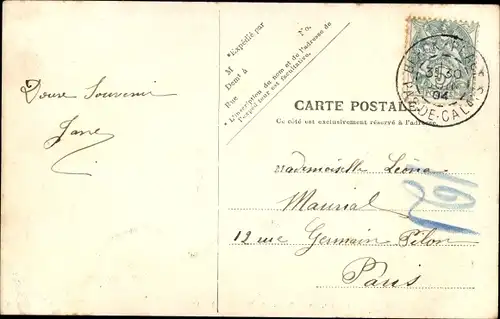 Doux Souvenir
Jane
*Expédié par
M
No.
Demt à
Rue
*L'inscription du nom et de l'adresse de
l'expéditeur est facultative.
CARTE POSTALE
Ce côté est exclusivement réservé à l'adresse.
PAS-DE-CALAIS
04
Mademoiselle Léonie
Maurial
12 rue Germain Pilon
Paris